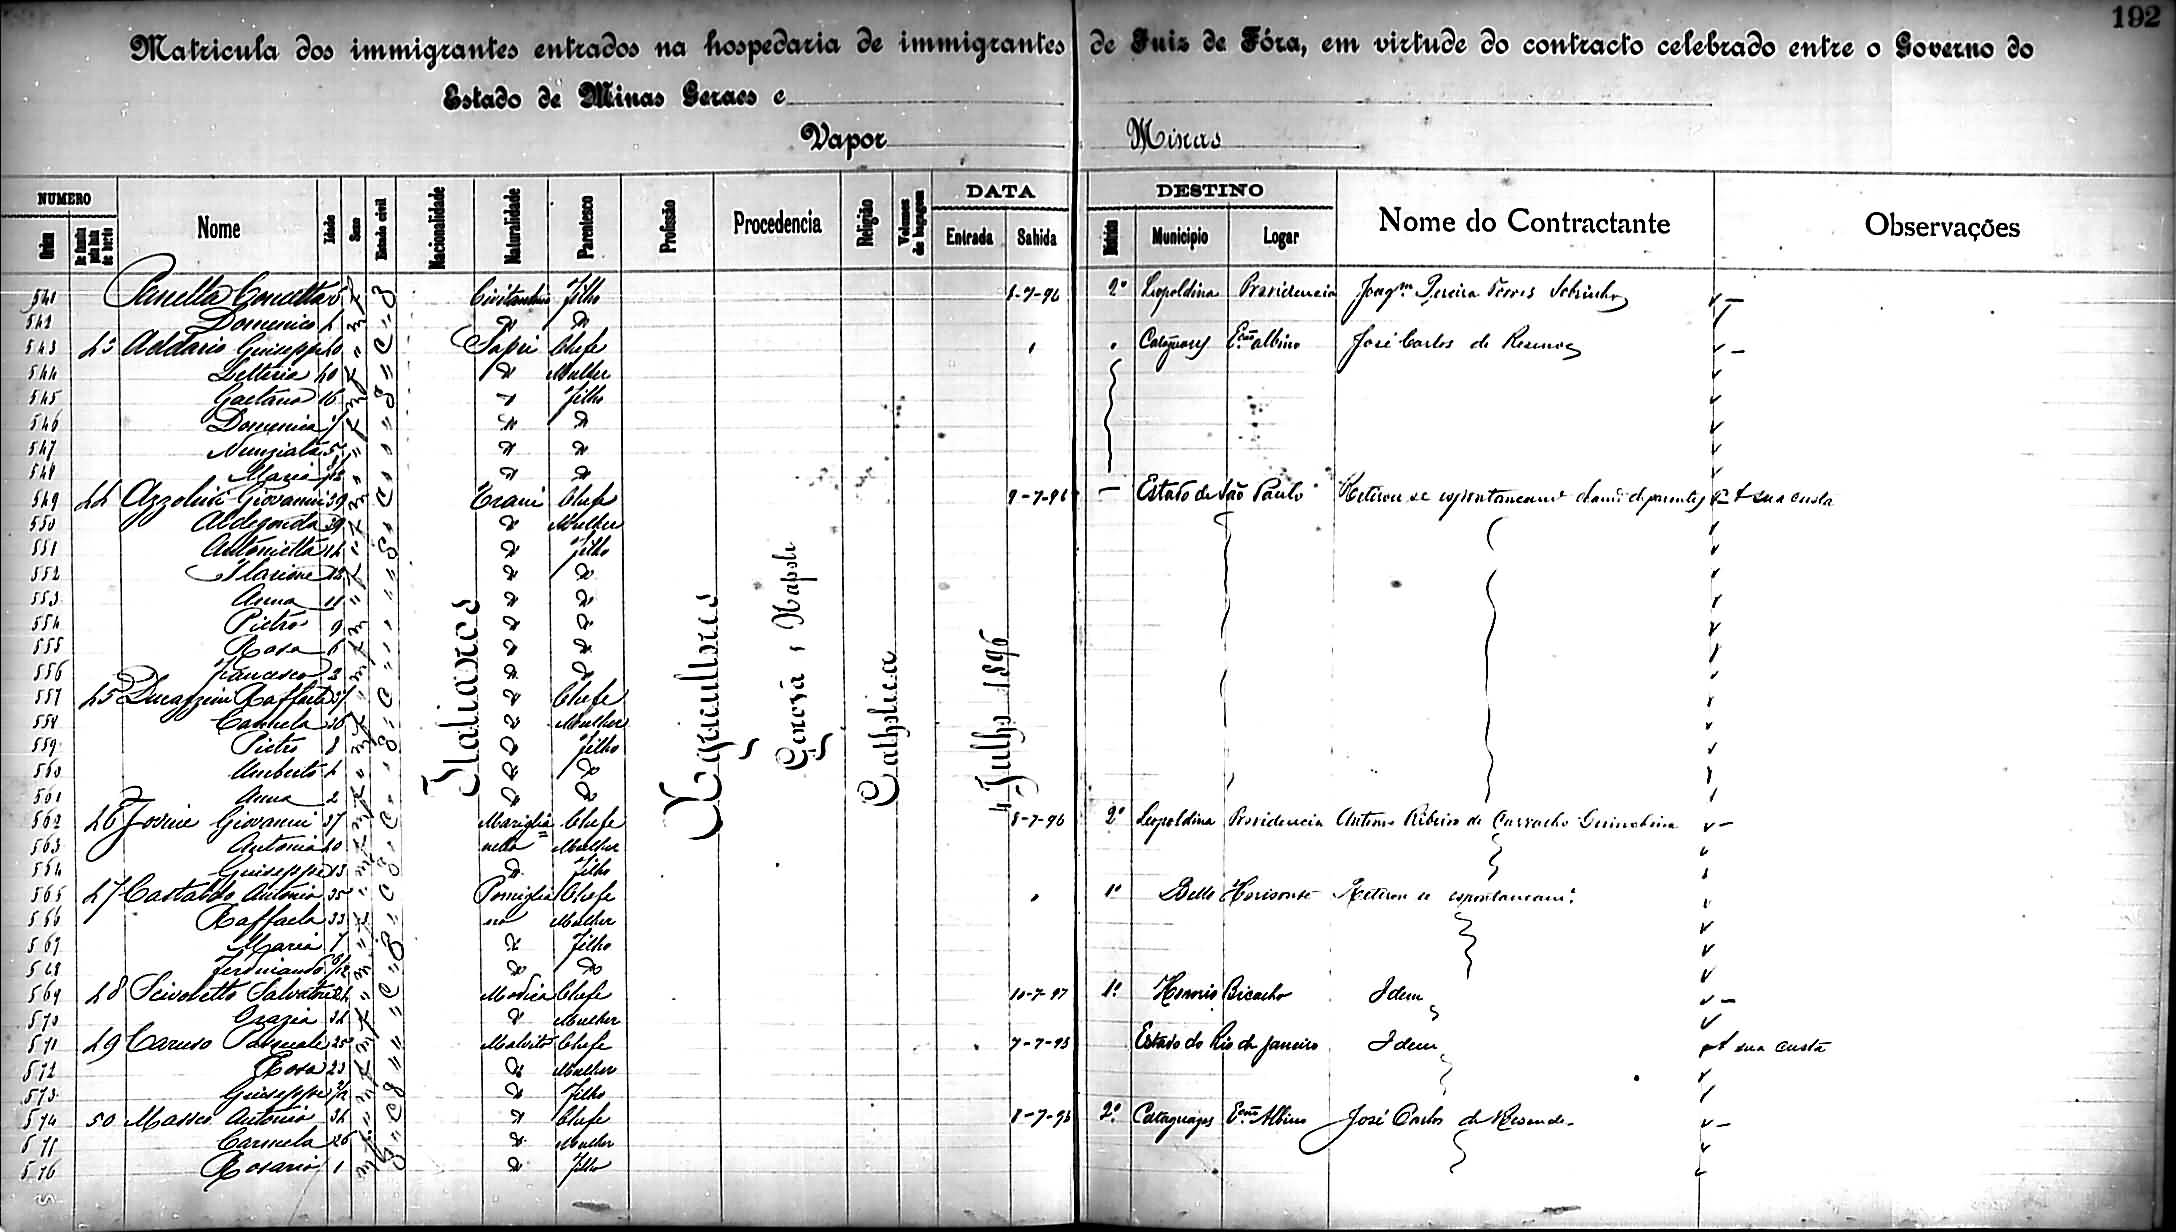 192
Matricula dos immigrantes entrados na hospedaria de immigrantes de Juiz de Fóra, em virtude do contracto celebrado entre o Governo do
Estado de Minas Geraes e
Vapor Minas
NUMERO Nome Idade Sexo Estado civil Nacionalidade Naturalidade Parentesco Profissão Procedencia Religião Volumes de bagagem DATA DESTINO Nome do Contractante Observações
Ordem De familia pela lista de bordo Entrada Sahida Districto Municipio Logar
Italianos Agricultores Genova e Napoli Catholica 4 Julho 1896
541 Concetta 5 f Filho 8-7-96 2º Leopoldina Providencia Joaqm Pereira Torres Sobrinho
542 Domenico 2 m
543 43 Addario Guiseppe 40 " C Sapri Chefe Cataguazes Ecm Albino José Carlos de Resende
544 Letteria 40 f " Mulher
545 Gaetano 16 m S Filho
546 Domenica 9 f
547 Nunziata 5 "
548 Maria
549 44 Azzolini Giovanni 39 m C Trani Chefe 9-7-96 Estado de São Paulo Retirou se espontaneame chamo de parentes A sua custa
550 Aldegonda 39 f Mulher
551 Antonietta 14 S Filho
552 Ilarione 12
553 Anna 11
554 Pietro 9 m
555 Rosa 6 f
556 Francesco 3 m
557 45 Raffaele 37 " C Chefe
558 Carmela 36 f Mulher
559 Pietro 8 m S Filho
560 Umberto 4 "
561 Anna 2 f
562 46 Iovine Giovanni 37 m C Mariglia= Chefe 8-7-96 2º Leopoldina Providencia Antonio Ribeiro de Carvalho
563 Antonia 40 f nella Mulher
564 Guiseppe 13 m S Filho
565 47 Castaldo Antonio 35 " C Pomiglia Chefe 1º Bello Horisonte Retirou se espontaneame
566 Raffaela 33 f no Mulher
567 Maria 7 " S Filho
568 Ferdinando 6/12 m
569 48 Scivoletto Salvatore 24 " C Modica Chefe 10-7-97 1º Honorio Bicalho Idem
570 Grazia 34 f " Mulher
571 49 Caruso Pasquale 25 m " Malvito Chefe 7-7-98 Estado do Rio de Janeiro Idem A sua custa
572 Rosa 23 f " Mulher
573 Guiseppe m S Filho
574 50 Antonio 34 " C Chefe 8-7-96 2º Cataguazes Ecm Albino José Carlos de Resende
575 Carmela 26 f " Mulher
576 Rosario 1 m S Filho